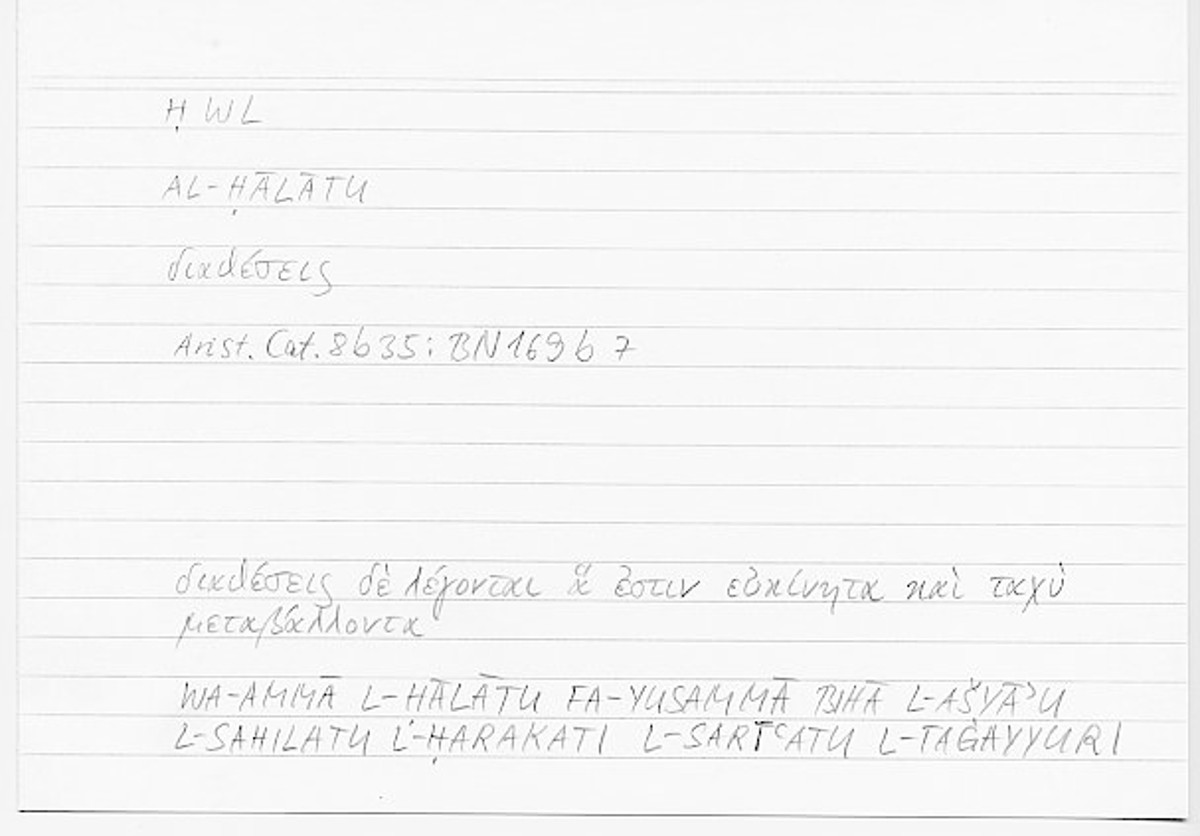 Ḥ W L
AL-ḤĀLĀTU
διαθέσεις
Arist. Cat. 8 b 35 : BN 169 b 7
διαθέσεις δὲ λέγονται ἅ ἐστιν εὐκίνητα καὶ ταχὺ
μεταβάλλοντα
WA-AMMĀ L-HĀLĀTU FA-YUSAMMĀ BIHĀ L-AŠYĀʾU
L-SAHILATU L-ḤARAKATI L-SARĪʿATU L-TAĠAYYURI